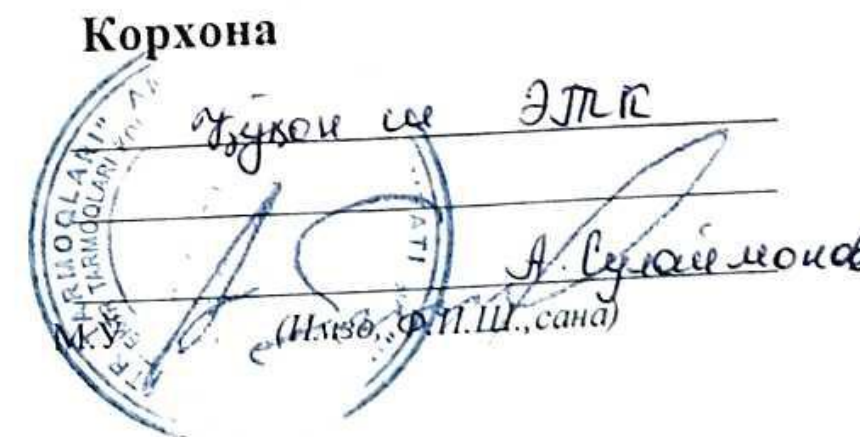 Корхона
Қўқон ш ЭТК
А. Сулаймонов
М.У (Имзо, Ф.И.Ш., сана)
TARMOQLARI